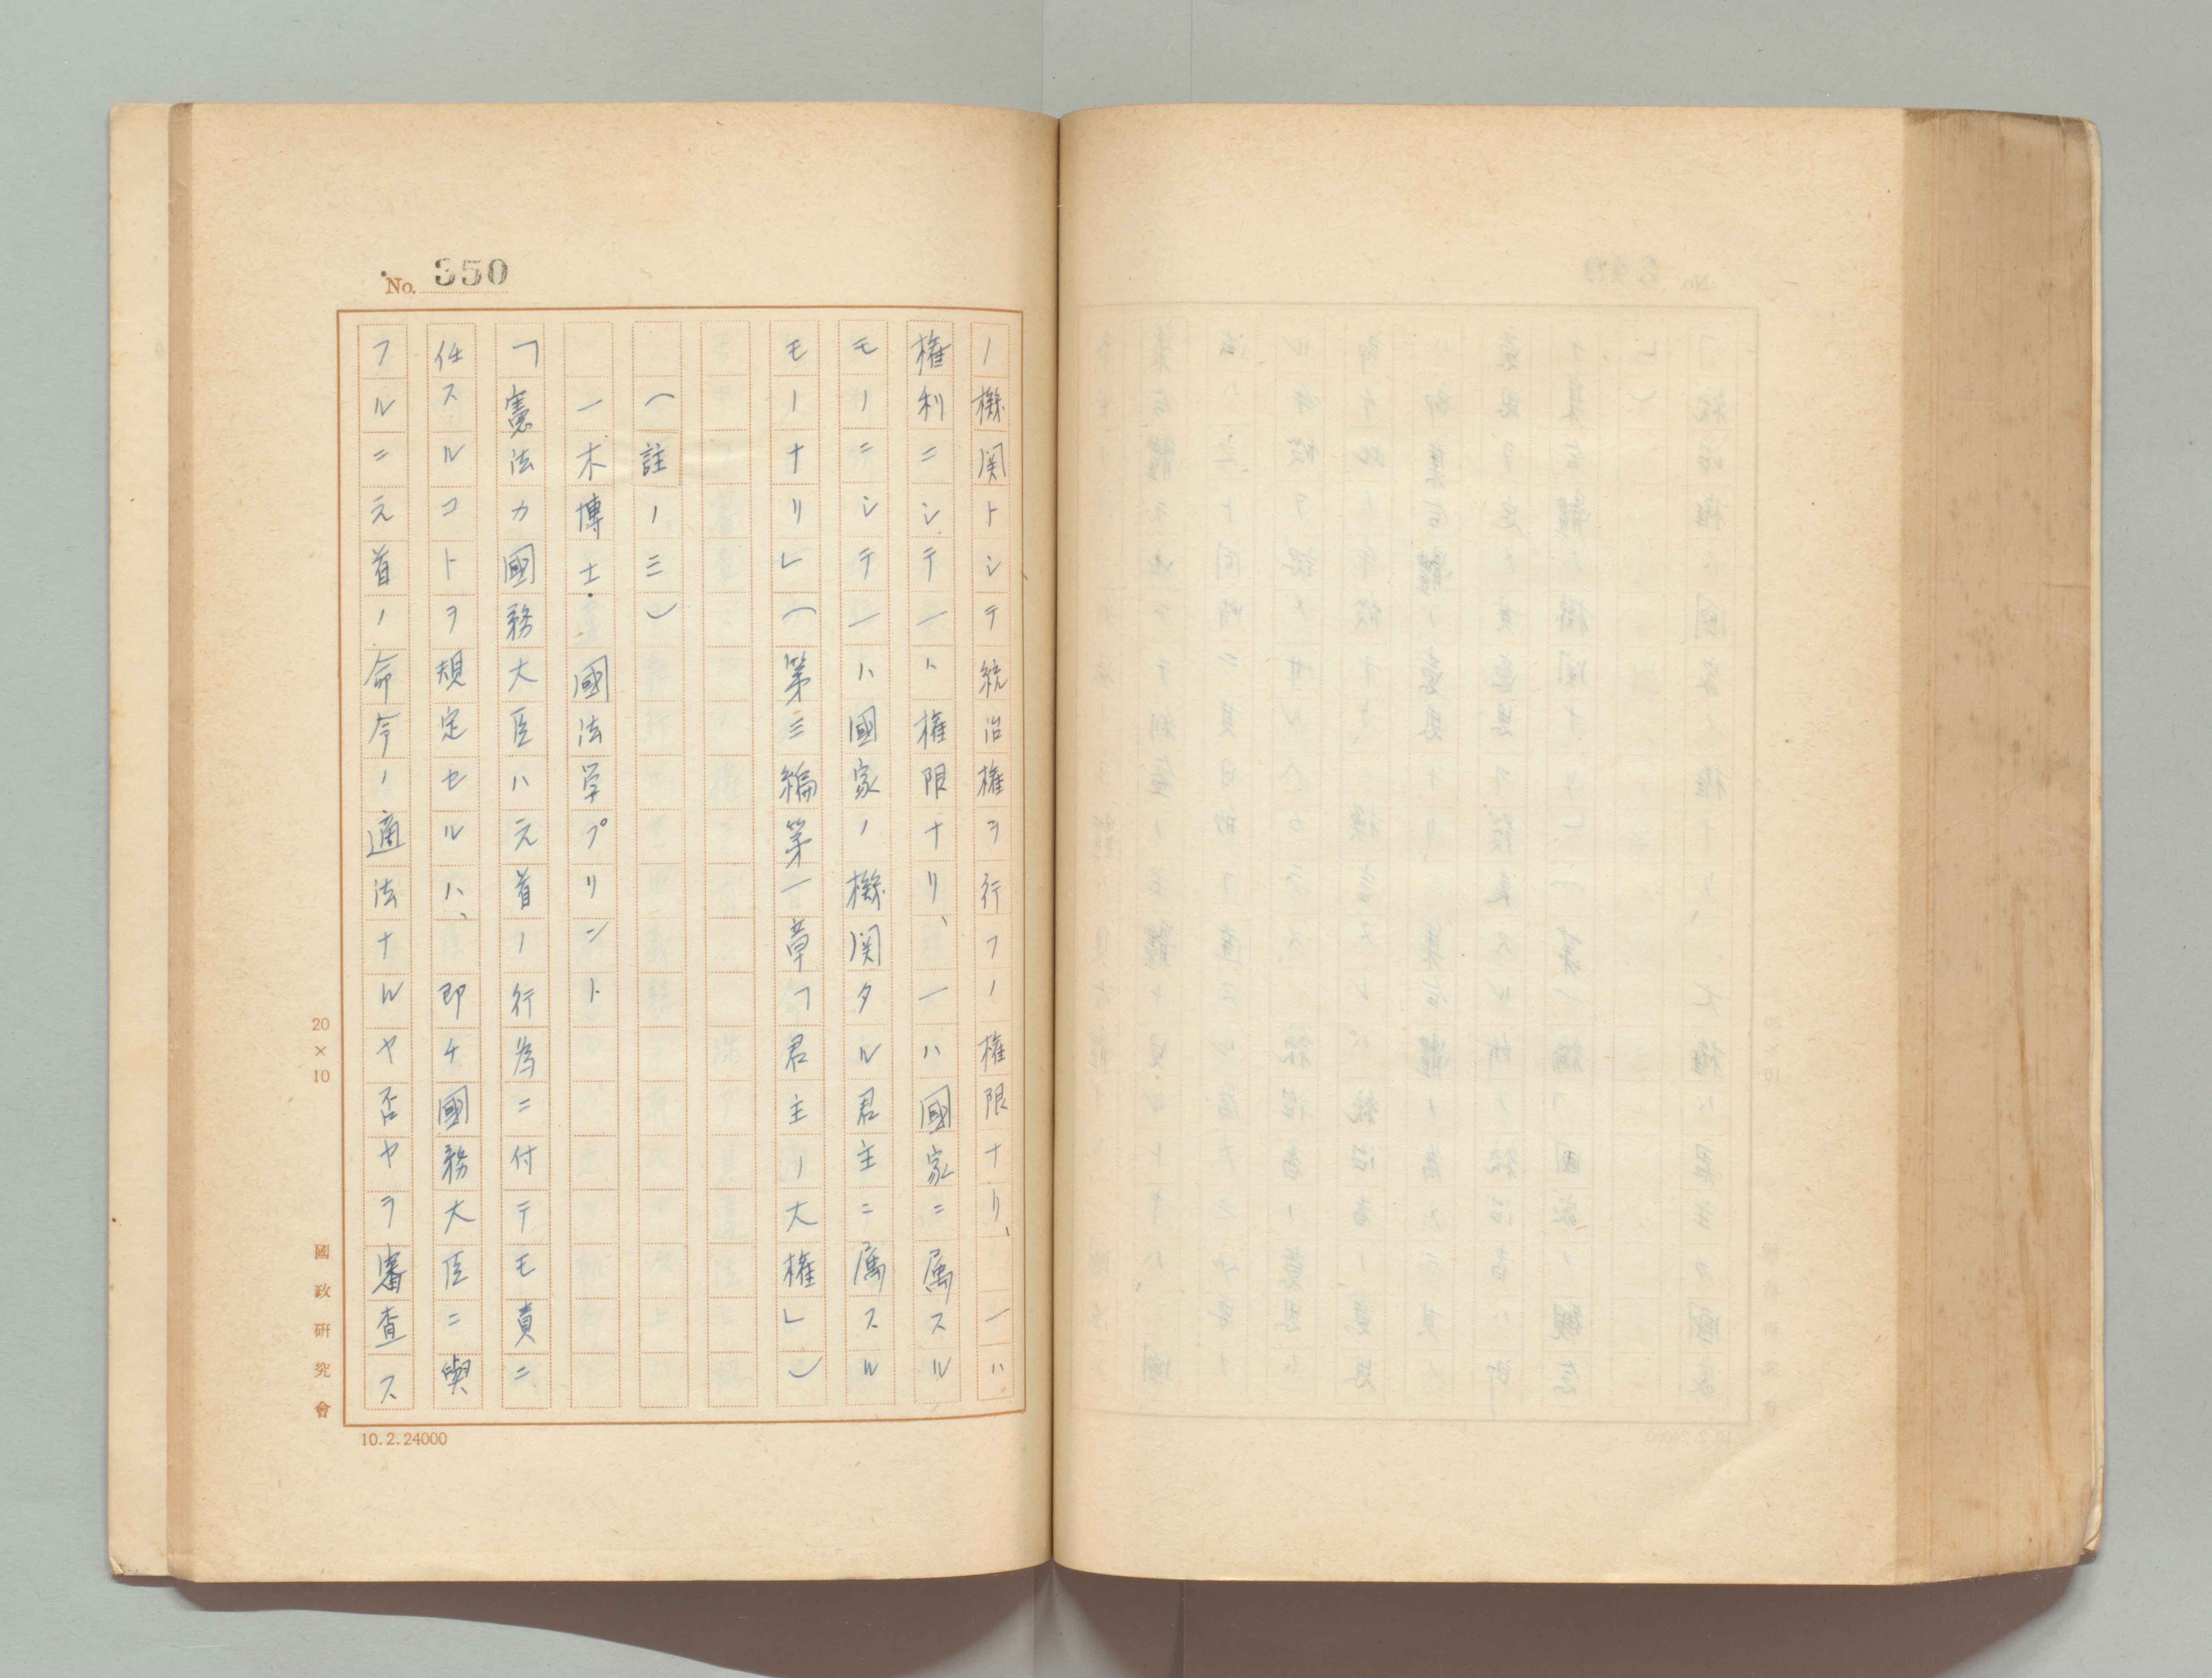 No. 350
ノ機関トシテ統治権ヲ行フノ権限ナリ、一ハ
権利ニシテ一ハ権限ナリ、一ハ國家ニ属スル
モノニシテ一ハ國家ノ機関タル君主ニ属スル
モノナリ」(第三編第一章「君主ノ大権」)
(註ノ三)
一木博士・國法学プリント
「憲法カ國務大臣ハ元首ノ行為ニ付テモ責ニ
任スルコトヲ規定セルハ、即チ國務大臣ニ與
フルニ元首ノ命令ノ適法ナルヤ否ヤヲ審査ス
20×10
國政研究會
10.2.24000